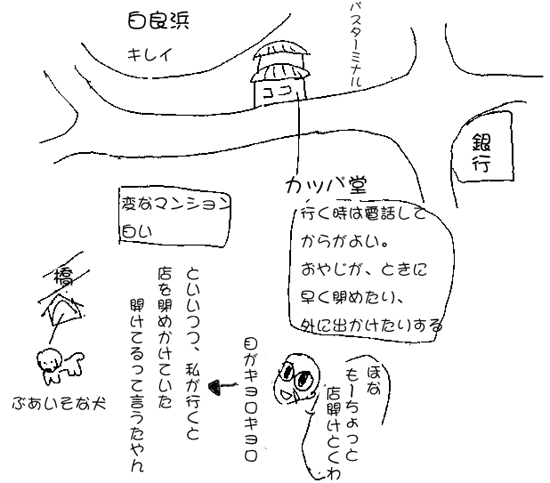 白良浜
キレイ
バスターミナル
ココ
銀行
カッパ堂
行く時は電話して
からがよい。
おやじが、ときに
早く閉めたり、
外に出かけたりする
変なマンション
白い
橋
ぶあいそな犬
といいつつ、私が行くと
店を閉めかけていた
開けてるって言うたやん
目がキョロキョロ
ほな
もーちょっと
店開けとくわ